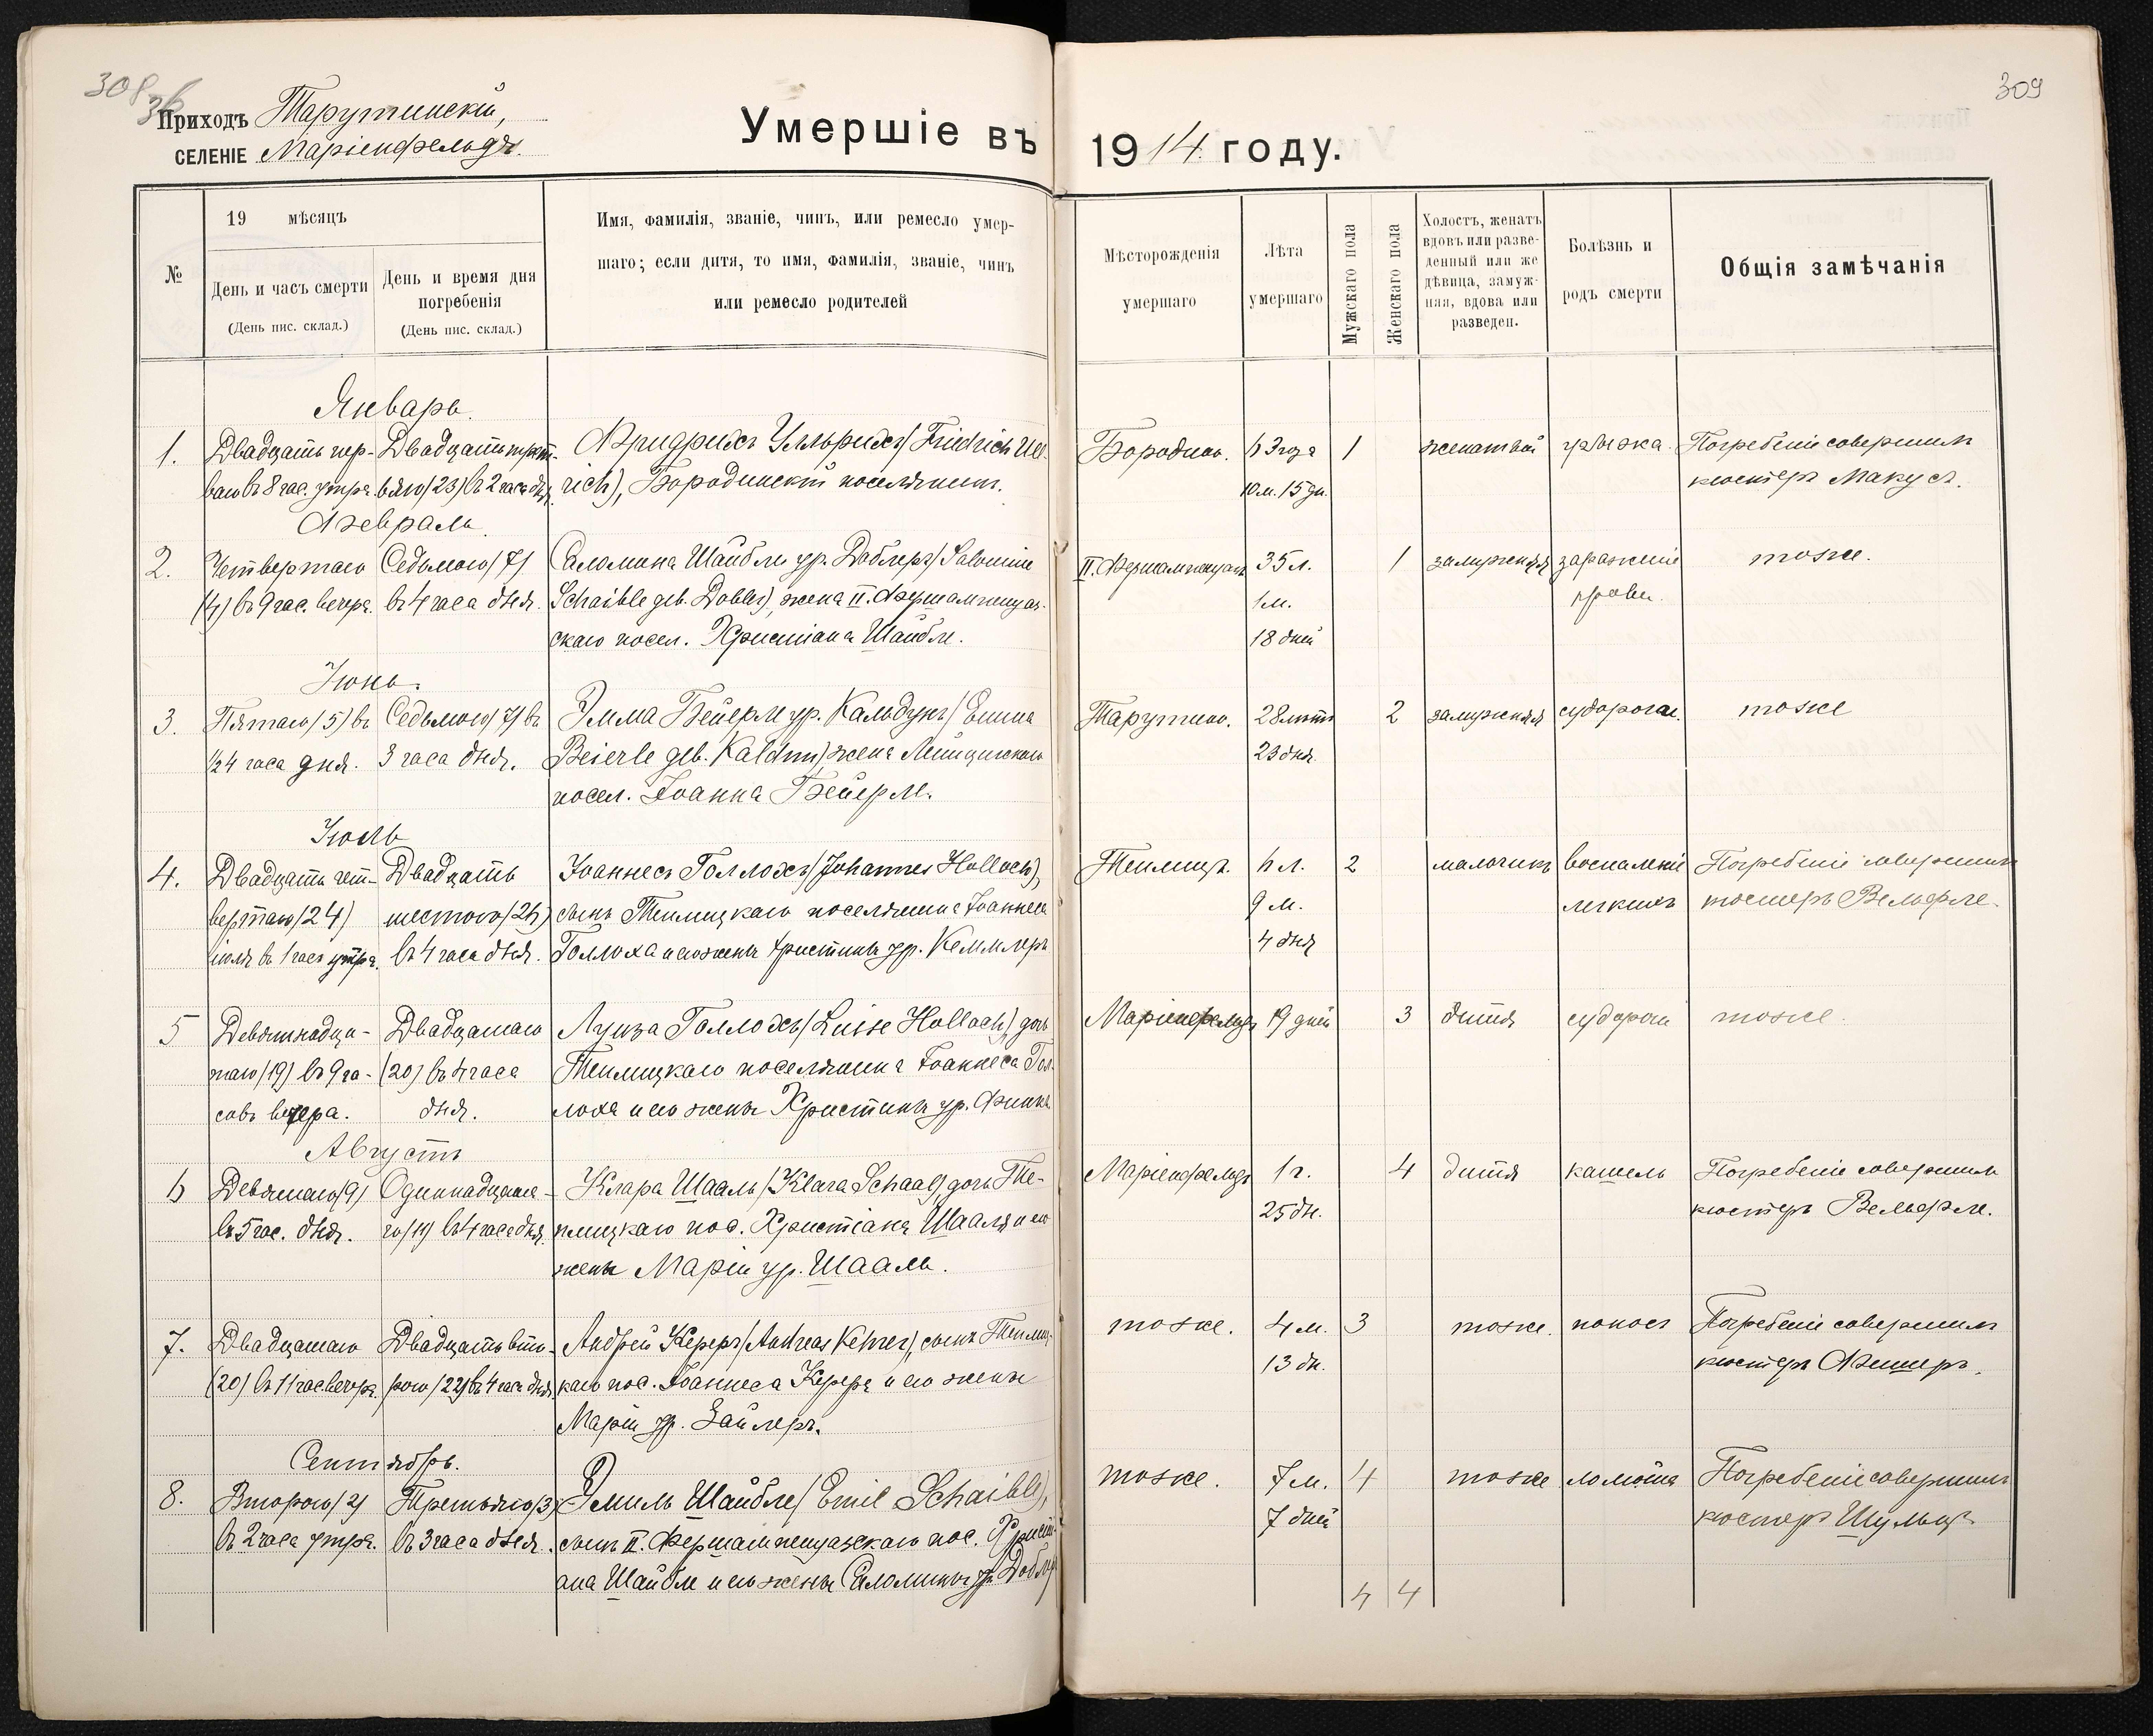 308
36
Приходъ Тарутинскій,
СЕЛЕНІЕ Маріенфельдъ.
Умершіе въ
№
19 мѣсяцъ
День и часъ смерти
(День пис. склад.)
День и время дня
погребенія
(День пис. склад.)
Имя, фамилія, званіе, чинъ, или ремесло умер-
шаго; если дитя, то имя, фамилія, званіе, чинъ
или ремесло родителей
Январь.
1. Двадцать пер- Двадцать треть- Фридрихъ Улльрихъ (Friedrich Ull-
ваго въ 8 час. утра. яго (23) въ 2 часа дня. rich), Бородинскій поселянинъ.
Февраль.
2. Четвертаго Седьмого (7) Саломина Шайбле ур. Доблеръ (Salomine
(4) въ 9 час. вечера. въ 4 часа дня. Schaible geb. Dobler), жена II. Фершампенуаз-
скаго посел. Христіана Шайбле.
Іюнь.
3. Пятаго (5) въ Седьмого (7) въ Эмма Бейерле ур. Кальдунъ (Emma
½4 часа дня. 3 часа дня. Beierle geb. Kaldun) жена Лейпцигскаго
посел. Іоанна Бейерле.
Іюль
4. Двадцать чет- Двадцать Іоаннесъ Голлохъ (Johannes Holloch),
вертаго (24) шестого (26) сынъ Теплицкаго поселянина Іоаннеса
іюля въ 1 часъ утра. въ 4 часа дня. Голлоха и его жены Христины ур. Кеммлеръ
5 Девятнадца- Двадцатаго Луиза Голлохъ (Luise Holloch), дочь
таго (19) въ 9 ча- (20) въ 4 часа Теплицкаго поселянина Іоаннеса Гол-
совъ вечера. дня. лоха и его жены Христины ур. Финкъ
Августъ
6 Девятаго (9) Одиннадцата- Клара Шааль (Klara Schaal), дочь Те-
въ 5 час. дня. го (11) въ 4 часа дня. плицкаго пос. Христіана Шааля и его
жены Маріи ур. Шааль.
7. Двадцатаго Двадцать вто- Андрей Кереръ (Andreas Kehrer), сынъ Теплиц-
(20) въ 11 час вечера. рого (22) въ 4 часа дня. каго пос. Іоаннеса Керера и его жены
Маріи ур. Зайлеръ.
Сентябрь.
8. Второго (2) Третьяго (3) Эмиль Шайбле (Emil Schaible),
въ 2 часа утра. въ 3 часа дня. сынъ II. Фершампенуазскаго пос. Христі-
ана Шайбле и его жены Саломины ур. Доблеръ
309
1914 году.
Мѣсторожденія
умершаго
Лѣта
умершаго
Мужскаго пола
Женскаго пола
Холостъ, женатъ
вдовъ или разве-
денный или же
дѣвица, замуж-
няя, вдова или
разведен.
Болѣзнь и
родъ смерти
Общія замѣчанія
Бородино. 63 года 1 женатый грыжа. Погребеніе совершилъ
10 м. 15 дн. кюстеръ Макусъ.
II. Фершампенуазъ 35 л. 1 замужняя зараженіе тоже.
1 м. крови.
18 дней
Тарутино. 28 лѣтъ 2 замужняя судороги. тоже
23 дня.
Теплицъ. 6 л. 2 мальчикъ воспаленіе Погребеніе совершилъ
9 м. легкихъ кюстеръ Вельфле.
4 дня
Маріенфельдъ 19 дней 3 дитя судороги тоже.
Маріенфельдъ 1 г. 4 дитя кашель Погребеніе совершилъ
25 дн. кюстеръ Вельфле.
тоже. 4 м. 3 тоже. поносъ Погребеніе совершилъ
13 дн. кюстеръ Фишеръ.
тоже. 7 м. 4 тоже ломота Погребеніе совершилъ
7 дней кюстеръ Шульцъ
4 4